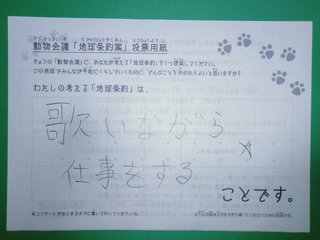 動物会議「地球条約案」投票用紙
きょうの「動物会議」で、あなたが考える「地球条約」を1つ提案してください。
この地球でみんなが平和にくらしていくために、どんなことを決めたらよいと思いますか?
わたしの考える「地球条約」は、
歌いながら
仕事をする
ことです。